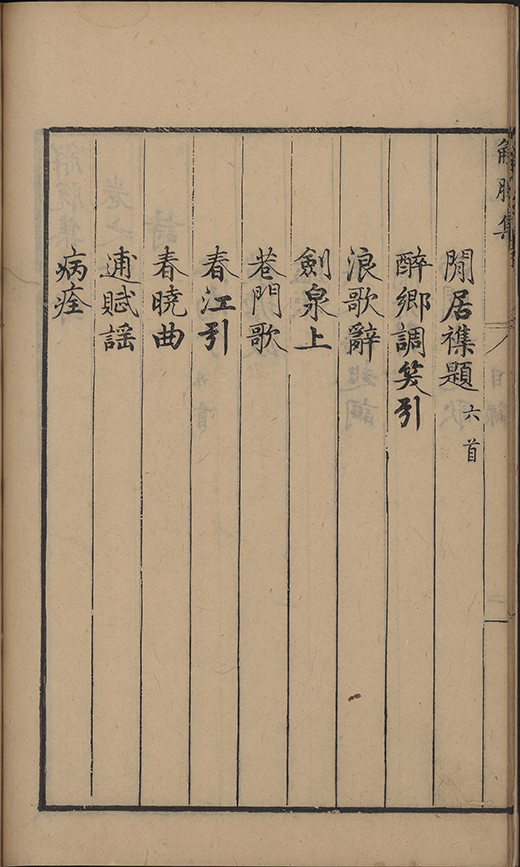 解脫集
閒居襍題 六首
醉鄉調笑引
浪歌辭
劍泉上
巷門歌
春江引
春曉曲
逋賦謡
病痊